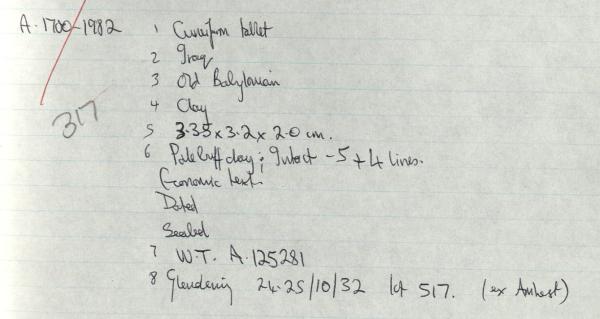 A.1700-1982 1 Cuneiform tablet
2 Iraq
3 Old Babylonian
317
4 Clay
5 3.35 x 3.2 x 2.0 cm.
6 Pale buff clay; Intact - 5 + 4 lines.
Economic text.
Dated
Sealed
7 W.T. A.125281
8 Glendening 24-25/10/32 lot 517. (ex Amherst)